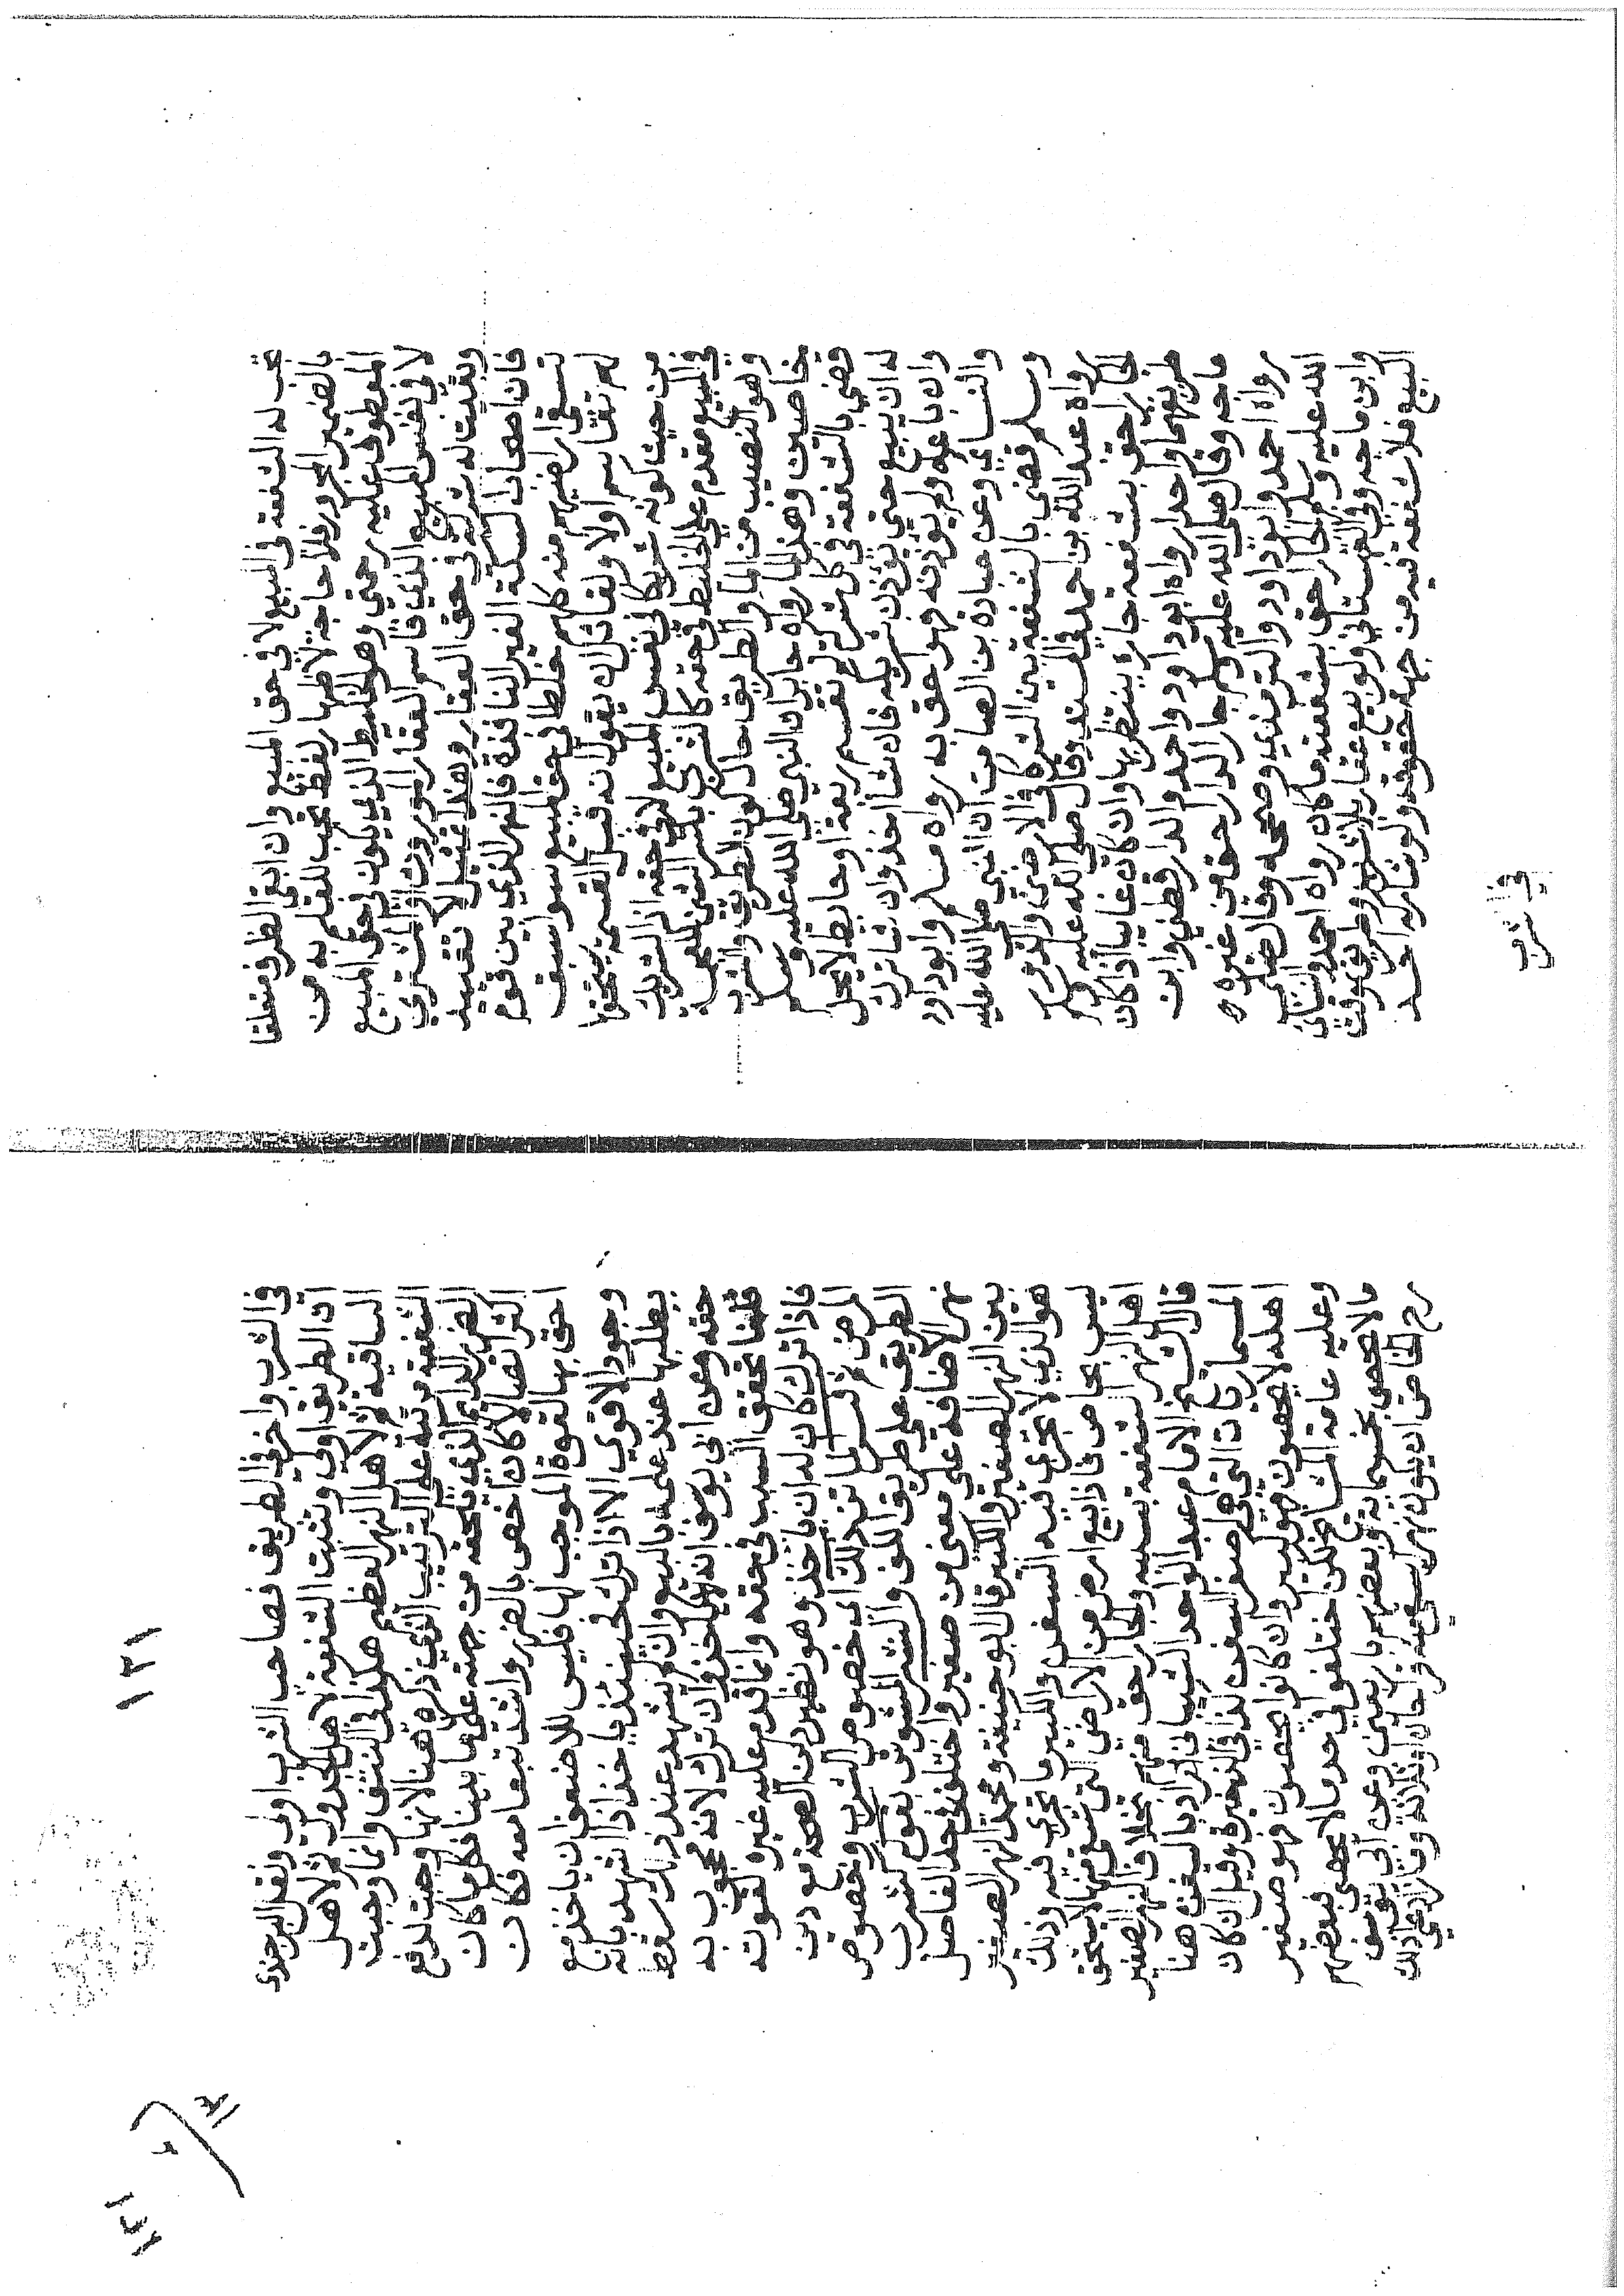 تجب له الشفعة في المبيع لا في حق المبيع وان ابقي الظرف متعلقا
بالضمير المجرور فلا حاجة لاظهار لفظ تجب للعلم به من
المعطوف عليه رحمتي وهو الخليط الذي يكون في حق المبيع
لا في نفس المبيع الذي قاسم العقار الموروث او المشتري
وبقيت له شركة في حق العقار وهذا تمثيل لا تقييد
فان اصحاب السكة الغير النافذة والنهر الذي بين قوم
تسقي اراضيهم منه كلهم خلطا في حق المبيع سوا سبق
لهم تقاسم اولا ولقائل ان يقول انه قبل القسمة يستحقها
من حيث كونه شريكا في نفس المبيع لا في حقه اذ الشريك
في المبيع مقدم علي الخليط في حقه كالشرب بكسر الشين المعجمة
وهو النصيب من الما والطريق حال كون الطريق والشرب
خاصين وهذا لما رواه جابر ان النبي صلي الله عليه وسلم
قضي بالشفعة في كل شركة لم تقسم ربعة او حايط لا يحل
له ان يبيع حتي يؤذن شريكه فان شا اخذ وان شا ترك
وان باعه ولم يؤذنه فهو احق به رواه مسلم وابو داود
والنساي وعن عبادة بن الصامت ان النبي صلي الله عليه
وسلم قضي بالشفعة بين الشركا في الارضين والدور
رواه عبد الله بن احمد في المسند وقال صلي الله عليه وسلم
الجار احق بشفعة جاره ينتظر بها وان كان غايبا اذا كان
طريقهما واحدا رواه ابو داود واحمد والدارقطني وابن
ماجه وقال صلي الله عليه وسلم جار الدار احق من غيره
رواه احمد وابو داود والترمذي وصححه وقال صلي
الله عليه وسلم الجار احق بشفعته ما كان رواه احمد والنساي
وابن ماجه وفي القهستاني ولو بيع عقار بلا شرب وطريق وقت
البيع فلا شفعة فيه من جهة حقوقه ولو شاركه احد
في الشرب
١٢١
في الشرب واخر في الطريق فصاحب الشرب اولي ونقل البرجندي
ان الطريق اقوي وتثبت الشفعة لاهل الجدول ثم لاهل
الساقية ثم لاهل النهر العظيم هكذا في النتف وانما وجبت
الشفعة مرتبة علي الترتيب الذي ذكره هنا لانها وجبت لدفع
الضرر الدايم الذي يلحقه من جهته علي ما بينا فكل ما كان
اكثر اتصالا كان اخص بالضرر واشد تبعا معه فكان
احق بها لقوة الموجب لها فليس للاضعف ان ياخذ مع
وجود الاقوي الا اذا ترك فحينئذ ياخذ اذا اشهد بانه
يطلبها عند علمه بالبيع وان لم يشهد عند ذلك سقط
حقه وعن ابي يوسف انه لا ياخذ وان ترك لانه محجوب به
قلنا تحقق السبب في حقه وانما قدم عليه غيره لقوته
فاذا ترك كان له ان ياخذ وهو نظير دين الصحة مع دين
المرض ثم فسر لما تن ذلك اي خصوص الشرب وخصوص
الطريق علي طريق اللف والنشر المشوش بقوله كشرب
نهر الاضافة علي معني من صغير واختلف في حد الفاصل
بين النهر الصغير والكبير قال ابو حنيفة ومحمد النهر الصغير
هو الذي لا تجري فيه السفن والكبير ما تجري فيه وذلك
ليس بخاص فاذا بيع ارض من الاراضي التي تسقي منها لا يستحق
اهل النهر الشفعة بسببه والجار احق منهم بخلاف النهر الصغير
قال الشيخ الامام عبد الواحد الشيباني اراد بالسفن هنا
المسماريات التي هي اصغر السفن كذا في الذخيرة وقيل ان كان
اهله لا يحصون فهو كبير وان كانوا يحصون فهو صغير
وعليه عامة المشايخ لكن اختلفوا في حد ما لا يحصي فبعضهم
ما لا يحصي بخمسماية وبعضهم باربعين وعن ابي يوسف
رح الخاص ان يكون نهرا يسقي منه قراحان او ثلاثة وما زاد علي ذلك